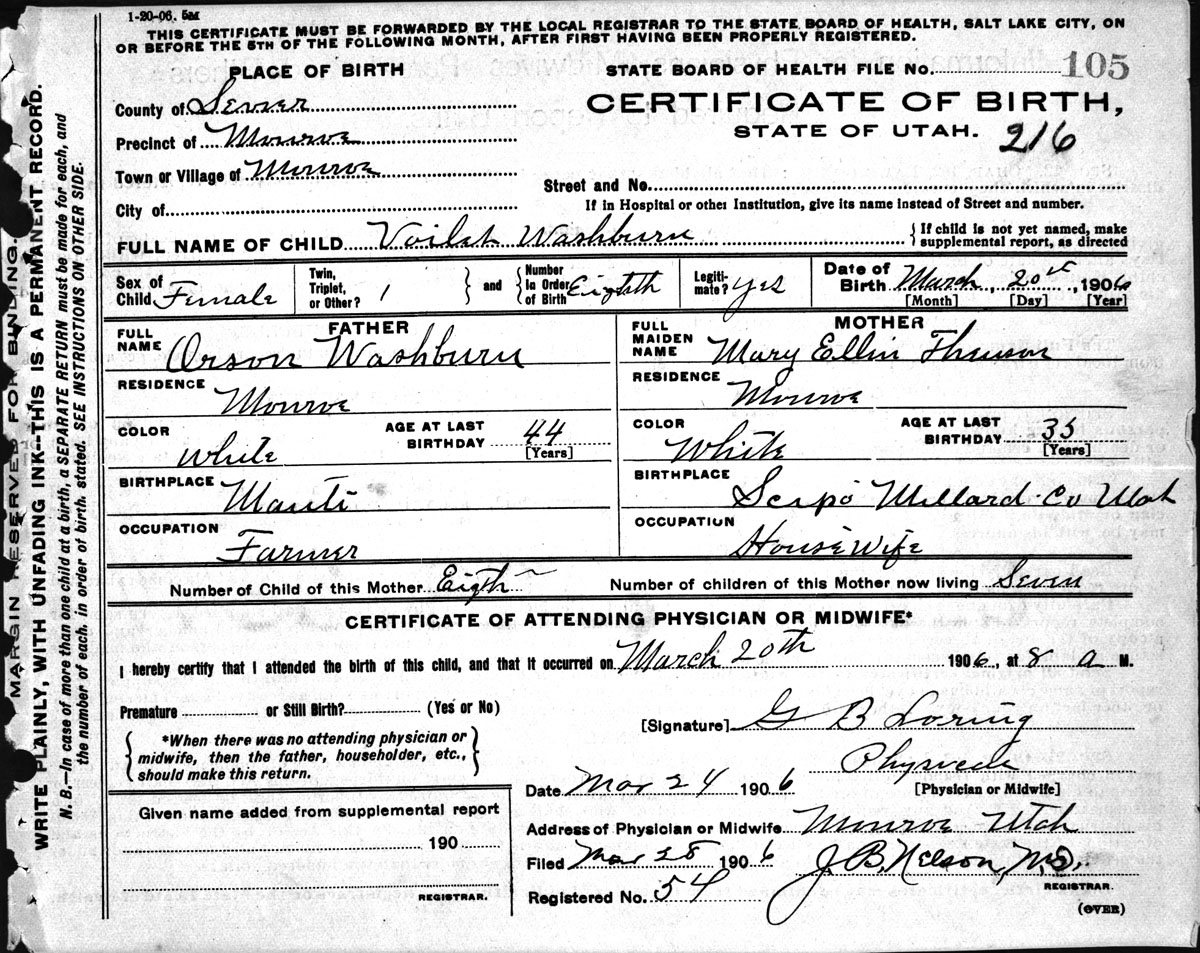 1-20-06. 5M
THIS CERTIFICATE MUST BE FORWARDED BY THE LOCAL REGISTRAR TO THE STATE BOARD OF HEALTH, SALT LAKE CITY, ON
OR BEFORE THE 5TH OF THE FOLLOWING MONTH, AFTER FIRST HAVING BEEN PROPERLY REGISTERED.
PLACE OF BIRTH
STATE BOARD OF HEALTH FILE NO. 105
County of Sevier
CERTIFICATE OF BIRTH,
Precinct of Monroe
STATE OF UTAH. 216
Town or Village of Monroe
Street and No.
City of
If in Hospital or other Institution, give its name instead of Street and number.
FULL NAME OF CHILD Voilet Washburn
If child is not yet named, make
supplemental report, as directed
Sex of
Child Female
Twin,
Triplet,
or Other? 1
and
Number
in Order
of Birth Eighth
Legiti-
mate? yes
Date of
Birth March 20th, 1906
[Month] [Day] [Year]
FATHER
FULL
NAME Orson Washburn
RESIDENCE
Monroe
COLOR
White
AGE AT LAST
BIRTHDAY 44
[Years]
BIRTHPLACE
Manti
OCCUPATION
Farmer
MOTHER
FULL
MAIDEN
NAME Mary Ellin
RESIDENCE
Monroe
COLOR
White
AGE AT LAST
BIRTHDAY 35
[Years]
BIRTHPLACE
Scipo Millard Co Utah
OCCUPATION
House Wife
Number of Child of this Mother Eigth
Number of children of this Mother now living Seven
CERTIFICATE OF ATTENDING PHYSICIAN OR MIDWIFE*
I hereby certify that I attended the birth of this child, and that it occurred on March 20th 1906, at 8 a M.
Premature or Still Birth? (Yes or No)
*When there was no attending physician or
midwife, then the father, householder, etc.,
should make this return.
[Signature] G B Loring
[Physician or Midwife]
Date Mar 24 1906
Address of Physician or Midwife Monroe Utah
Filed Mar 28 1906
J. B. Nelson, M.D.
REGISTRAR.
Registered No. 54
(OVER)
Given name added from supplemental report
190
REGISTRAR.
MARGIN RESERVED FOR BINDING.
WRITE PLAINLY, WITH UNFADING INK--THIS IS A PERMANENT RECORD.
N. B.—In case of more than one child at a birth, a SEPARATE RETURN must be made for each, and
the number of each, in order of birth, stated. SEE INSTRUCTIONS ON OTHER SIDE.